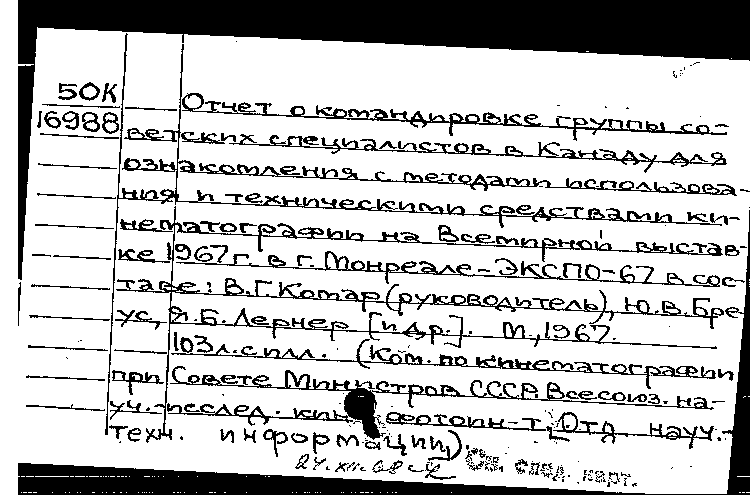 50К
16988
Отчет о командировке группы со-
ветских специалистов в Канаду для
ознакомления с методами использова-
ния и техническими средствами ки-
нематографии на Всемирной выстав-
ке 1967 г. в г. Монреале-ЭКСПО-67 в сос-
таве: В.Г. Комар (руководитель), Ю.В. Бре-
ус, Я.Б. Лернер [и др.]. М., 1967.
103 л. с илл. (Ком. по кинематографии
при Совете Министров СССР. Всесоюз. на-
уч.-исслед. кинофотоин-т. Отд. науч.-
техн. информации).
24.XII.68
См. след. карт.